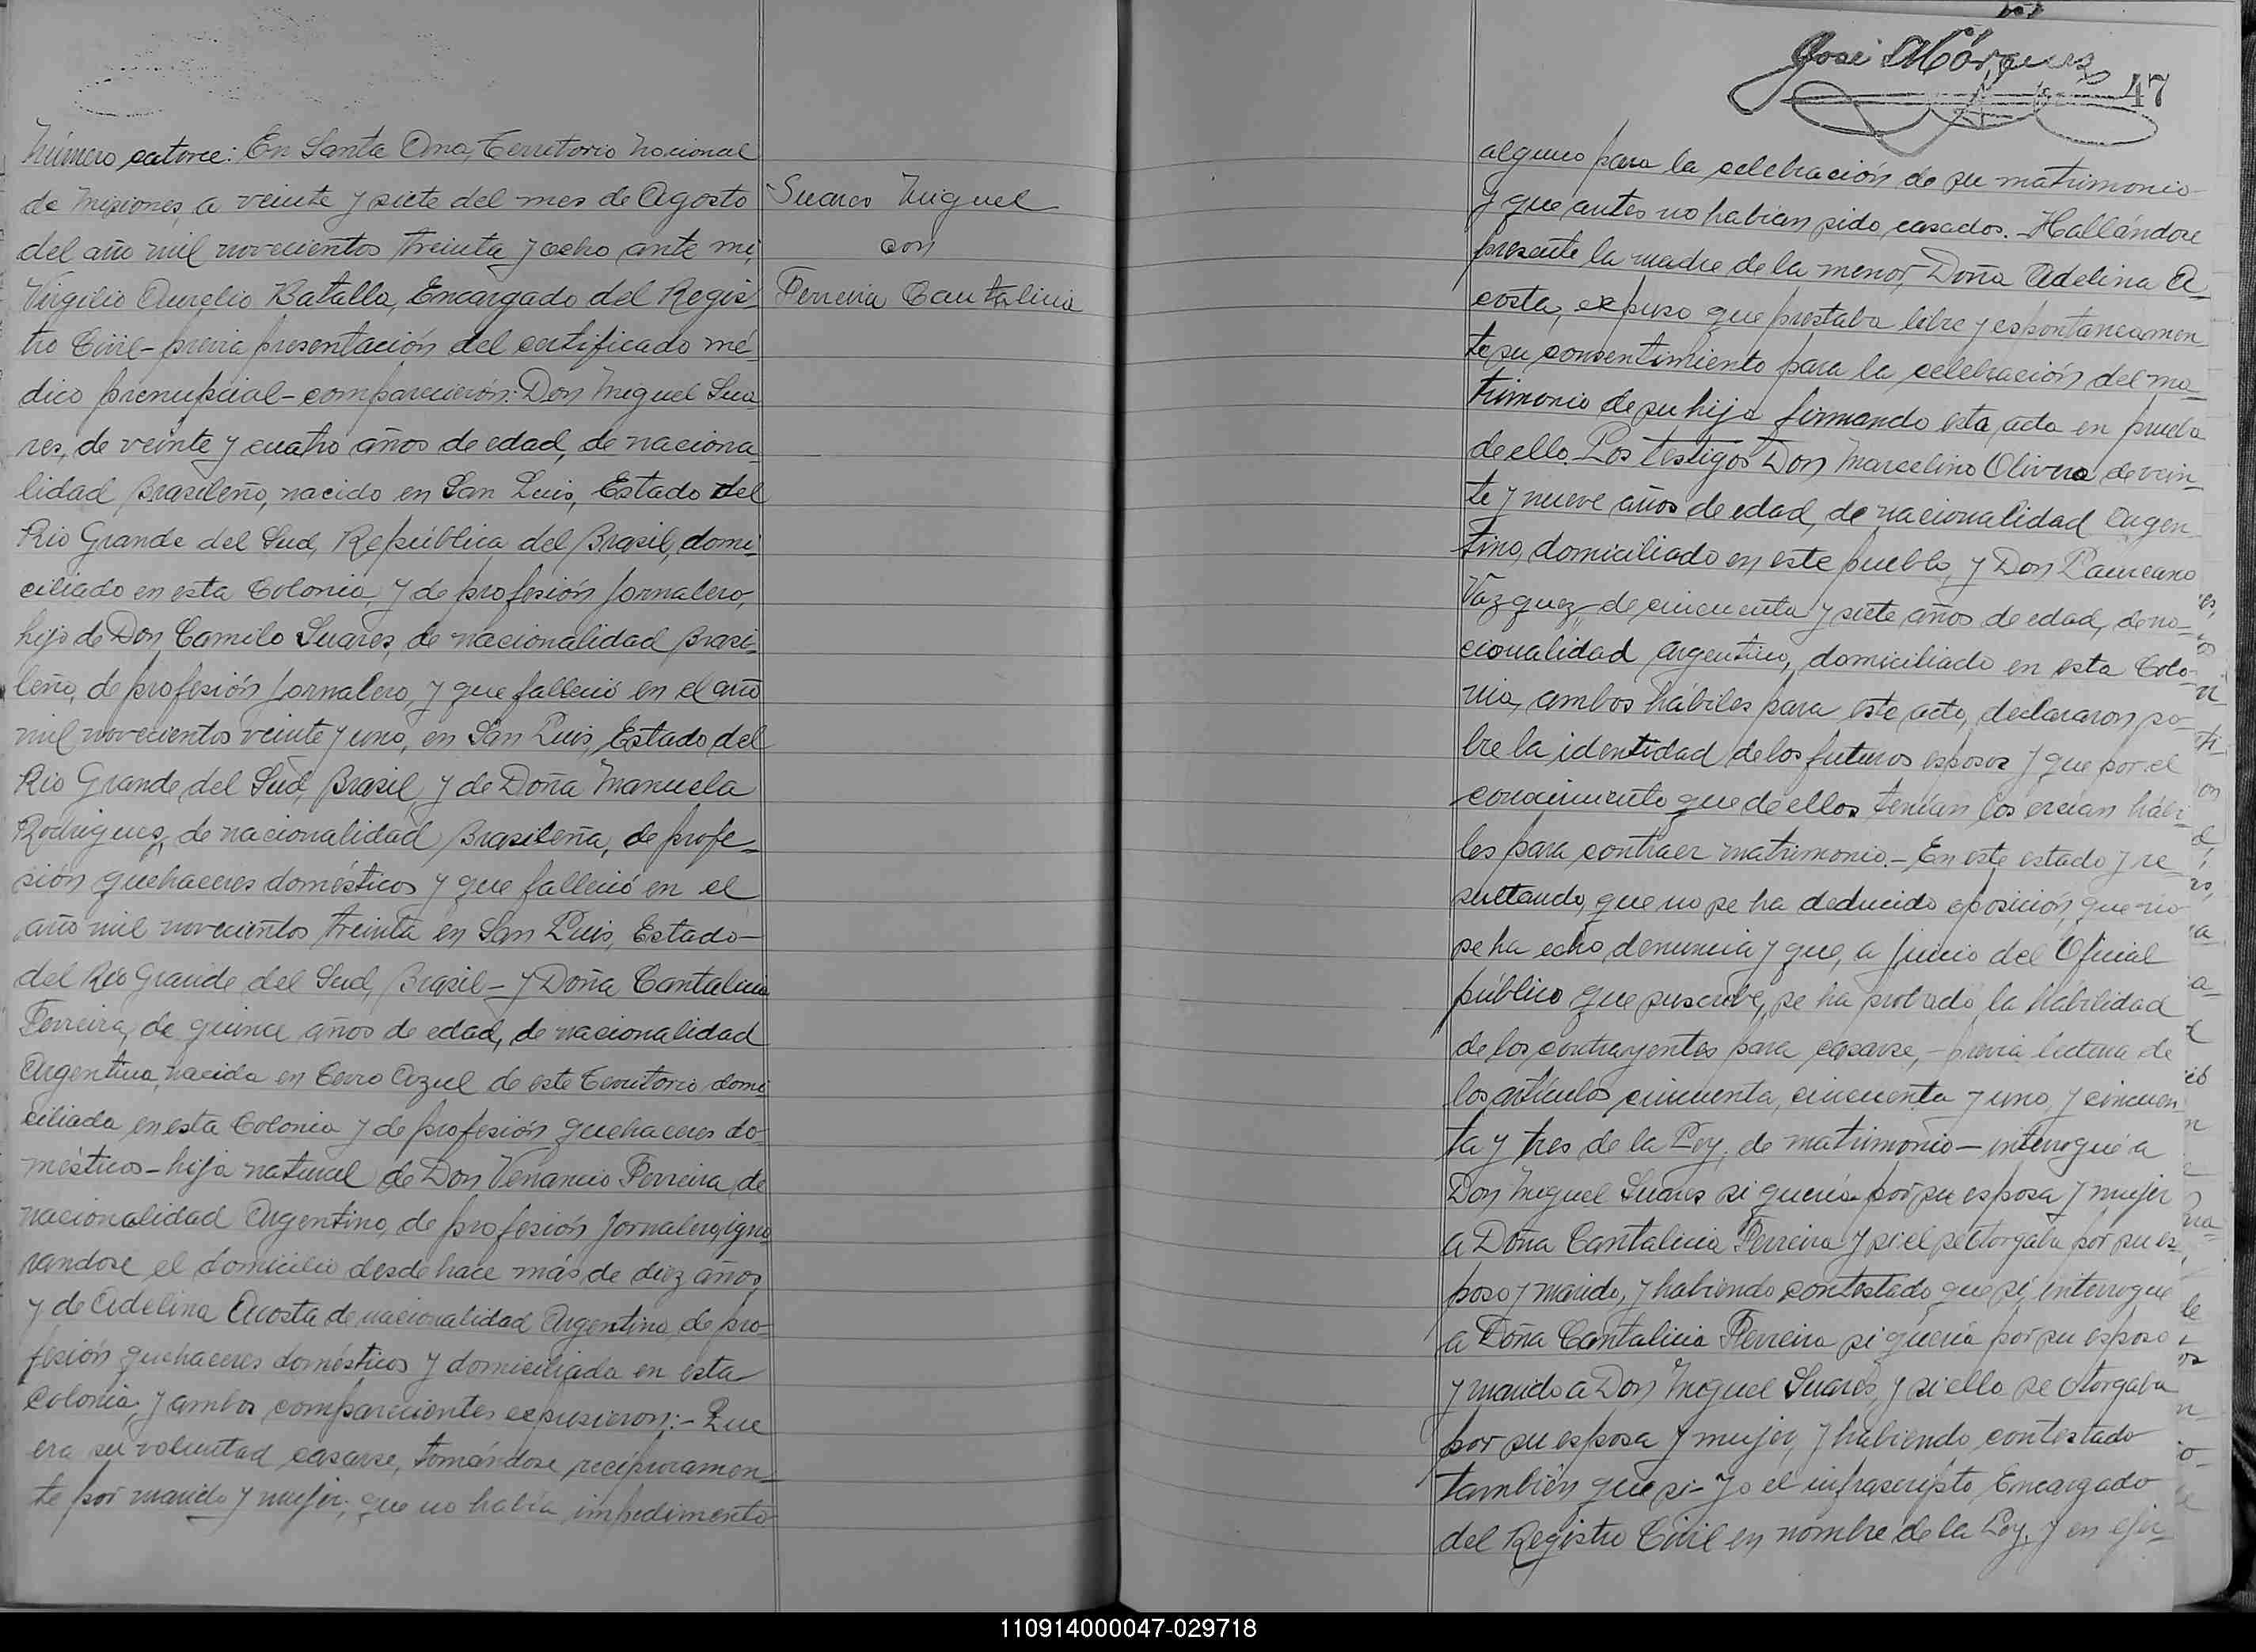 Número catorce: En Santa Ana, Territorio Nacional
de Misiones, a veinte y siete del mes de Agosto
del año mil novecientos treinta y ocho ante mi,
Virgilio Aurelio Batalla, Encargado del Regis-
tro Civil - previa presentación del certificado mé-
dico prenupcial - comparecieron: Don Miguel Sua-
res, de veinte y cuatro años de edad, de naciona-
lidad Brasileño, nacido en San Luis, Estado del
Rio Grande del Sud, República del Brasil, domi-
ciliado en esta Colonia, y de profesión jornalero,
hijo de Don Camilo Suares, de nacionalidad Brasi-
leño, de profesión jornalero, y que falleció en el año
mil novecientos veinte y uno, en San Luis, Estado del
Rio Grande del Sud, Brasil, y de Doña Manuela
Rodriguez, de nacionalidad Brasileña, de profe-
sión quehaceres domésticos y que falleció en el
año mil novecientos treinta en San Luis, Estado -
del Rio Grande del Sud, Brasil - y Doña Cantalicia
Ferreira, de quince años de edad, de nacionalidad
Argentina, nacida en Cerro Azul de este Territorio domi-
ciliada en esta Colonia y de profesión quehaceres do-
mésticos - hija natural de Don Venancio Ferreira de
nacionalidad Argentino, de profesión jornalero, igno-
randose el domicilio desde hace más de diez años,
y de Adelina Acosta de nacionalidad Argentina, de pro-
fesión quehaceres domésticos y domiciliada en esta
Colonia, y ambos comparecientes expusieron: - Que
era su voluntad casarse, tomándose reciprocamen-
te por marido y mujer; que no había impedimento
Suares Miguel
con
Ferreira Cantalicia
José Márquez
47
alguno para la celebración de su matrimonio -
y que antes no habían sido casados. - Hallándose
presente la madre de la menor, Doña Adelina A-
costa, expuso que prestaba libre y espontáneamen-
te su consentimiento para la celebración del ma-
trimonio de su hija firmando esta acta en prueba
de ello. Los testigos Don Marcelino Olivera de vein-
te y nueve años de edad, de nacionalidad Argen-
tino, domiciliado en este pueblo, y Don Laureano
Vázquez, de cincuenta y siete años de edad, de na-
cionalidad Argentino, domiciliado en esta Colo-
nia, ambos hábiles para este acto, declararon so-
bre la identidad de los futuros esposos y que por el
conocimiento que de ellos tenían los creían hábi-
les para contraer matrimonio. - En este estado y re-
sultando, que no se ha deducido oposición, que no
se ha echo denuncia y que, a juicio del Oficial
público que suscribe, se ha probado la habilidad
de los contrayentes para casarse, - previa lectura de
los artículos cincuenta, cincuenta y uno y cincuen
ta y tres de la Ley, de matrimonio - interrogué a
Don Miguel Suares si quería por su esposa y mujer
a Doña Cantalicia Ferreira y si el se otorgaba por su es-
poso y marido, y habiendo contestado que si, interrogue
a Doña Cantalicia Ferreira si quería por su esposo
y marido a Don Miguel Suares, y si ella se otorgaba
por su esposa y mujer, y habiendo contestado
también que si - Yo el infrascripto Encargado
del Registro Civil en nombre de la Ley, y en ejer-
110914000047-029718